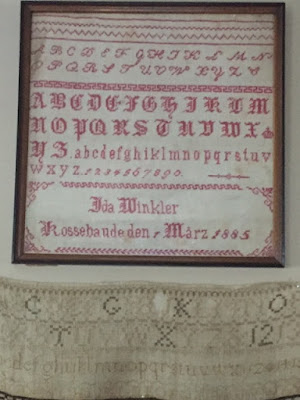 A B C D E F G H I K L M N
O P Q R S T U V W X Y Z
A B C D E F G H I K L M
N O P Q R S T U V W X
Y Z. a b c d e f g h i k l m n o p q r s t u v
w x y z. 1 2 3 4 5 6 7 8 9 0.
Ida Winkler
Kossebaude den 1 März 1885
C G K O
T X 12
defghiklmnopqrstuvwx